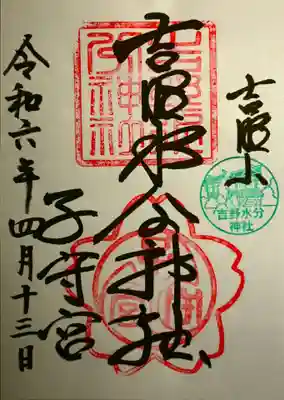 吉野山
吉野水分神社
吉野水分
神社
子守宮
令和六年四月十三日